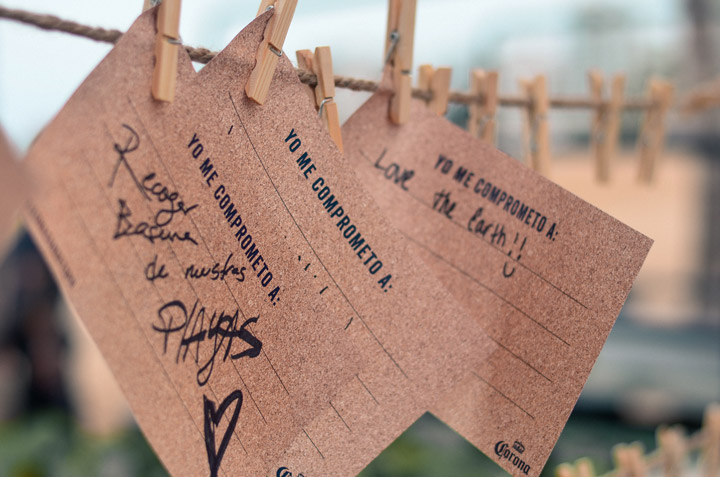 YO ME COMPROMETO A:
Recoger
Basura
de nuestras
PLAYAS
YO ME COMPROMETO A:
YO ME COMPROMETO A:
Love the Earth!!
Corona
Corona